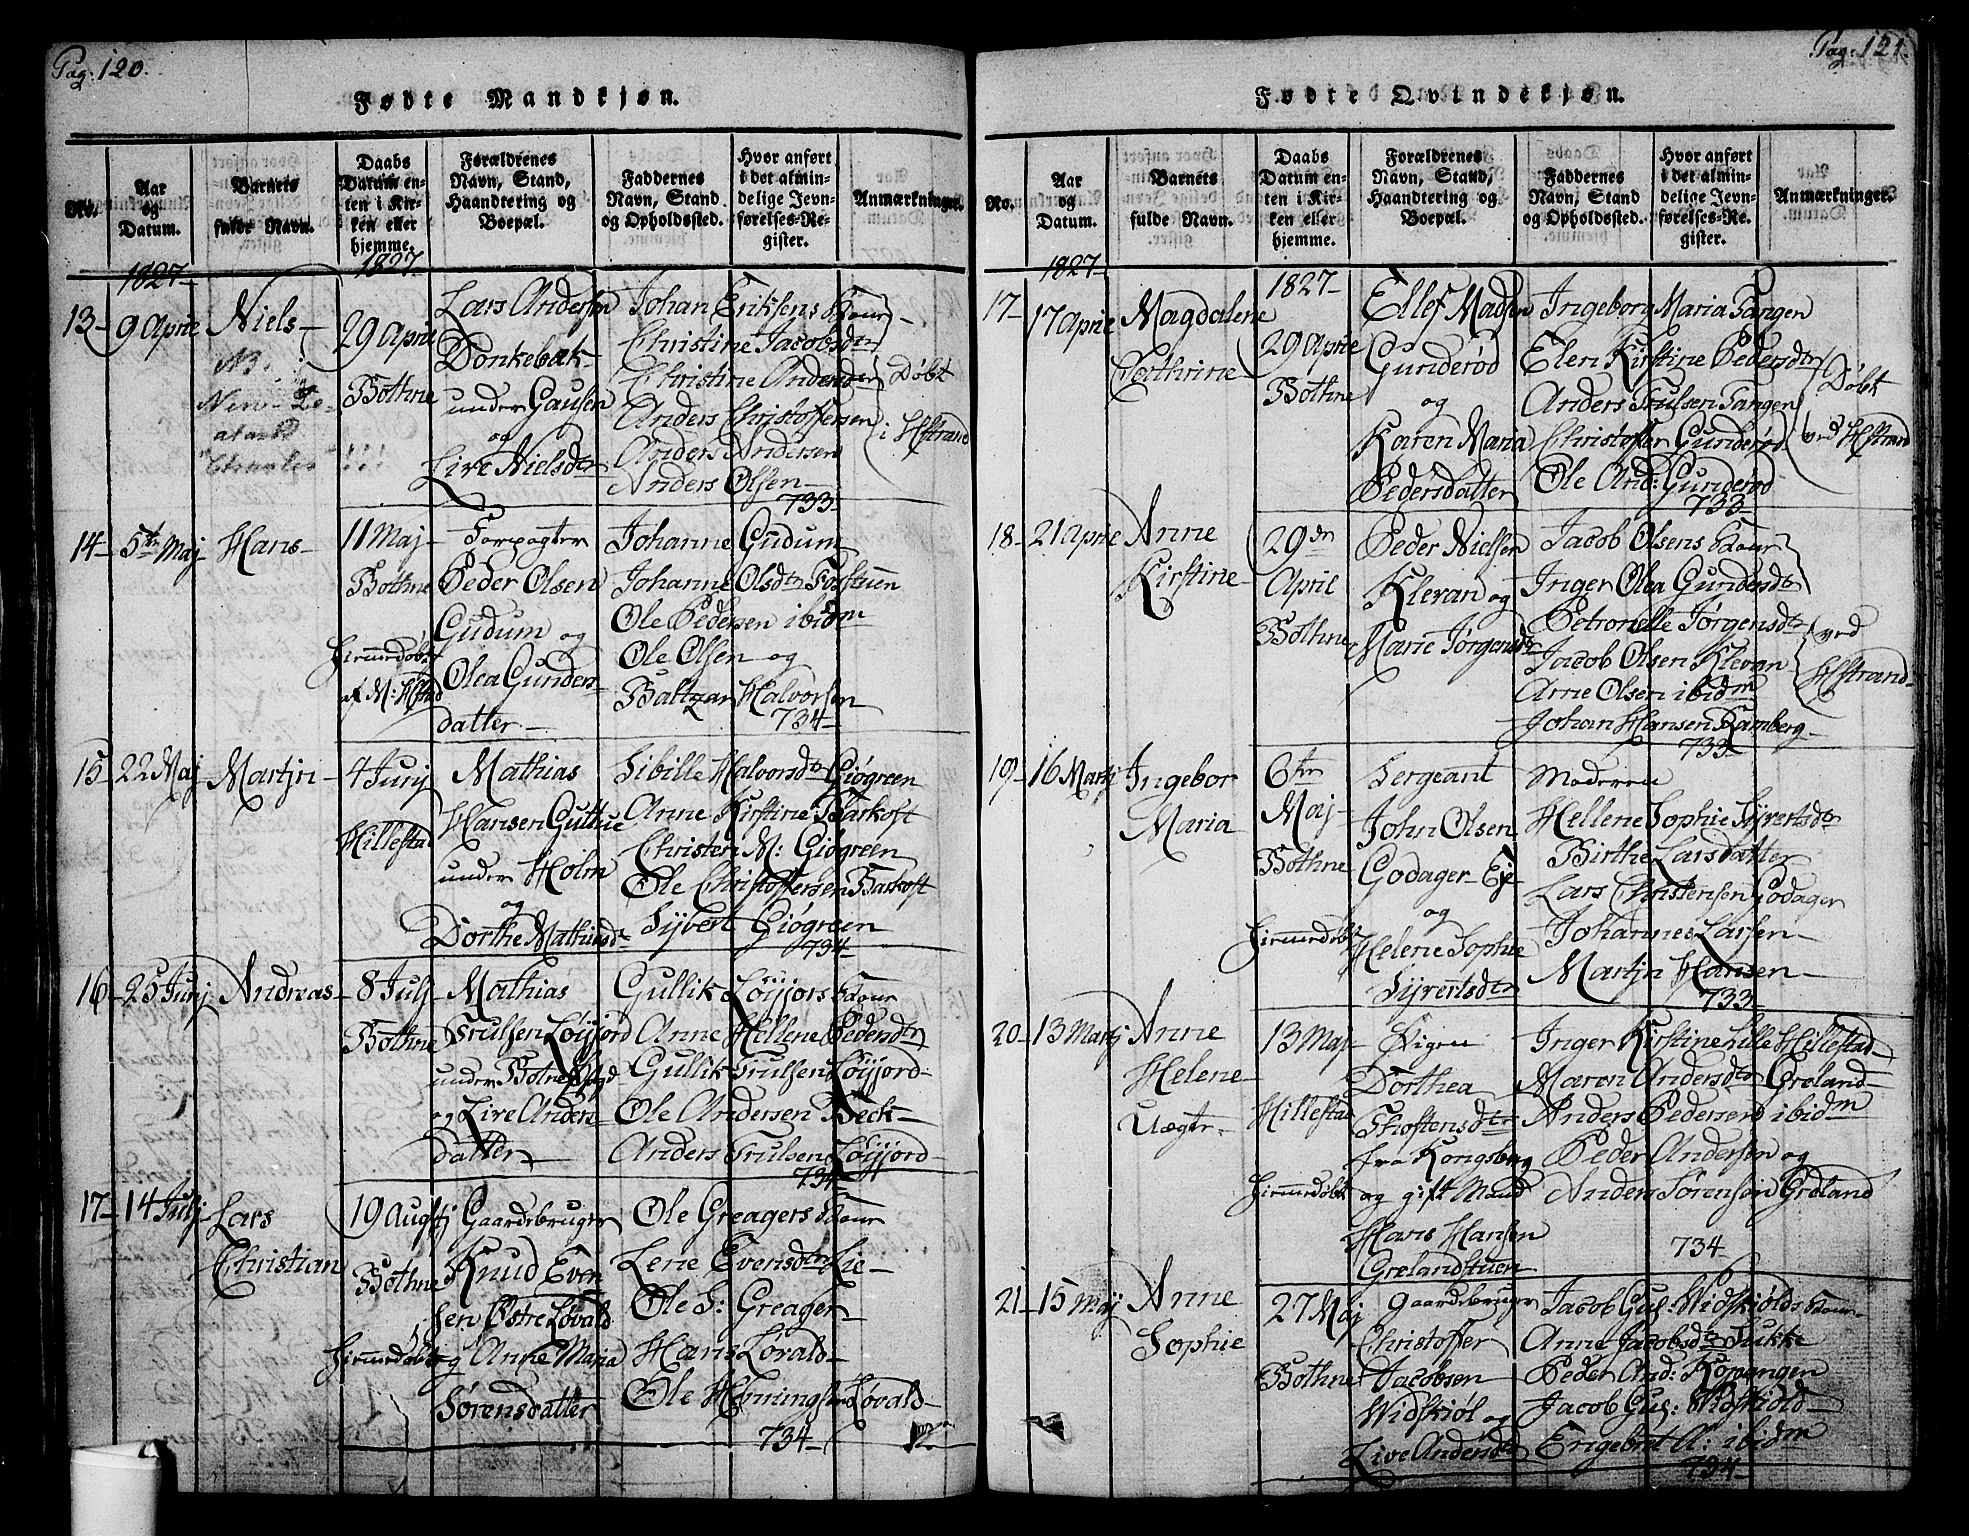 Pag: 120.
Fødte Mandkjøn.
No.
Aar og Datum.
Barnets fulde Navn.
Daabs Datum enten i Kirken eller hjemme.
Forældrenes Navn, Stand, Haandtering og Boepæl.
Faddernes Navn, Stand og Opholdssted.
Hvor anført i det almindelige Jevnførelses-Register.
Anmærkninger.
1827
1827
13
9 April
Niels
NB.
29 April
Bothne
Lars Andersen
Donkebæk
under Gausen
og
Live Nielsdtr
Johan Eriksens Kone
Christine Jacobsdtr
Christine Andersdtr
Anders Christoffersen
Anders Andersen
Anders Olsen
733
Døbt
i Hfstrand
14
5te Maj
Hans
11 Maj
Bothne
Hiemedøbt
af M: Hfstad
Forpagter
Peder Olsen
Gudum og
Olea Gunders
datter
Johanne Gudum
Johanne Olsdtr
Ole Pedersen ibidm
Ole Olsen og
Baltzar Halvorsen
734
15
22 Maj
Martin
4 Junj
Hillestad
Mathias
Hansen Guthue
under Holm
og
Dorthe Mathiesd
Sibille Halvorsdtr Giøgreen
Anne Kirstine Barkost
Christen M: Giøgreen
Ole Christoffersen Barkost
Sÿvert Giøgreen
734
16
25 Junj
Andreas
8 Julj
Bothne
Mathias
Trulsen Løyjord
under Botne
og Live Anders
datter
Gullik Løyjors Kone
Anne Hellene Pedersdtr
Gullik Trulsen Løyjord
Ole Andersen Beck
Anders Trulsen Løyjord
734
17
14 Julj
Lars
Christian
19 Augstj
Bothne
Hiemedøbt
Gaardebruger
Knud Even
sen Østre Løvald
og Anne Maria
Sørensdatter
Ole Greagers Kone
Lene Evensdtr Lie
Ole S: Greager
Hans Løvald
Ole Hemningsen Løvald
734
Pag: 121.
Fødte Qvindekjøn.
No.
Aar og Datum.
Barnets fulde Navn.
Daabs Datum enten i Kirken eller hjemme.
Forældrenes Navn, Stand, Haandtering og Boepæl.
Faddernes Navn, Stand og Opholdssted.
Hvor anført i det almindelige Jevnførelses-Register.
Anmærkninger.
1827
1827
17
17 April
Magdalene
Cathrine
29 April
Bothne
Ellef Madsen
Gunderød
og
Karen Maria
Pedersdatter
Ingeborg Maria Tangen
Elen Kirstine Pedersdtr
Anders Trulsen Tangen
Christoffer Gunderød
Ole And: Gunderød
733
Døbt
ved Hfstrand
18
21 April
Anne
Kirstine
29de
April
Bothne
Peder Nielsen
Klevan og
Marie Jørgensdtr
Jacob Olsens Kone
Inger Olea Gundersdtr
Petronelle Jørgensdtr
Jacob Olsen Klevan
Arne Olsen ibidm
Johan Hansen Ramberg
733
ved
Hfstrand
19
16 Martj
Ingebor
Maria
6te
Maj
Bothne
Hiemedøbt
Sergeant
John Olsen
Godager Eje
og
Helene Sophie
Sÿvertsdtr
Moderen
Hellene Sophie Sÿvertsdtr
Birthe Larsdatter
Lars Christensen Godager
Johannes Larsen
Martjn Hansen
733
20
13 Martj
Anne
Helene
Uægte
13 Maj
Hillestad
Hiemedøbt
Pigen
Dorthea
Thostensdtr
fra Kongsberg
og gift Mand
Hans Hansen
Grelandstuen
Inger Kirstine Lille Hillestad
Maren Andersdtr Greland
Anders Pedersen ibidm
Peder Andersen og
Anders Sørensøn Greland
734
21
15 Maÿ
Anne
Sophie
27 Maj
Bothne
gaardebruger
Christoffer
Jacobsen
Widskiøl og
Live Andersdtr
Jacob Gul: Widskiølds Kone
Anne Jacobsdtr Sukke
Peder And: Kopangen
Jacob Gul: Widskiold
Engebret A: ibidm
734